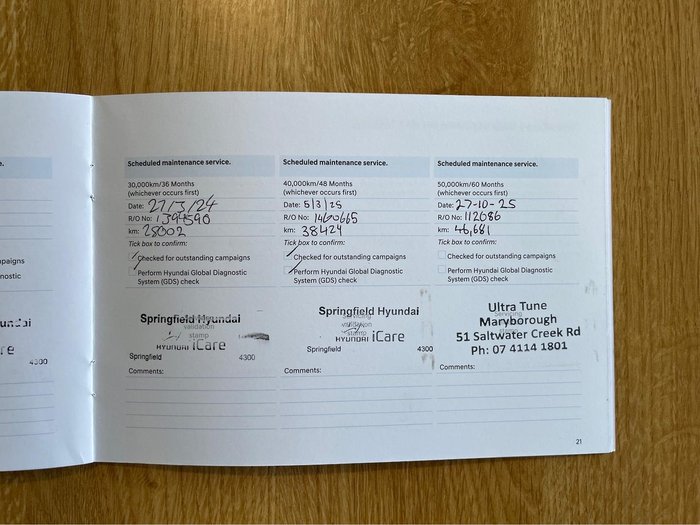 e.
paigns
nostic
4300
Scheduled maintenance service.
30,000km/36 Months
(whichever occurs first)
Date: 27/3/24
R/O No: 1394590
km: 28002
Tick box to confirm:
Checked for outstanding campaigns
Perform Hyundai Global Diagnostic
System (GDS) check
Springfield Hyundai
validation
stamp
HYUNDAI iCare
Springfield 4300
Comments:
Scheduled maintenance service.
40,000km/48 Months
(whichever occurs first)
Date: 5/3/25
R/O No: 1460665
km: 38424
Tick box to confirm:
Checked for outstanding campaigns
Perform Hyundai Global Diagnostic
System (GDS) check
Springfield Hyundai
validation
stamp
HYUNDAI iCare
Springfield 4300
Comments:
Scheduled maintenance service.
50,000km/60 Months
(whichever occurs first)
Date: 27-10-25
R/O No: 112086
km: 46,681
Tick box to confirm:
Checked for outstanding campaigns
Perform Hyundai Global Diagnostic
System (GDS) check
Ultra Tune
Servicing
Maryborough
51 Saltwater Creek Rd
Ph: 07 4114 1801
Comments:
21